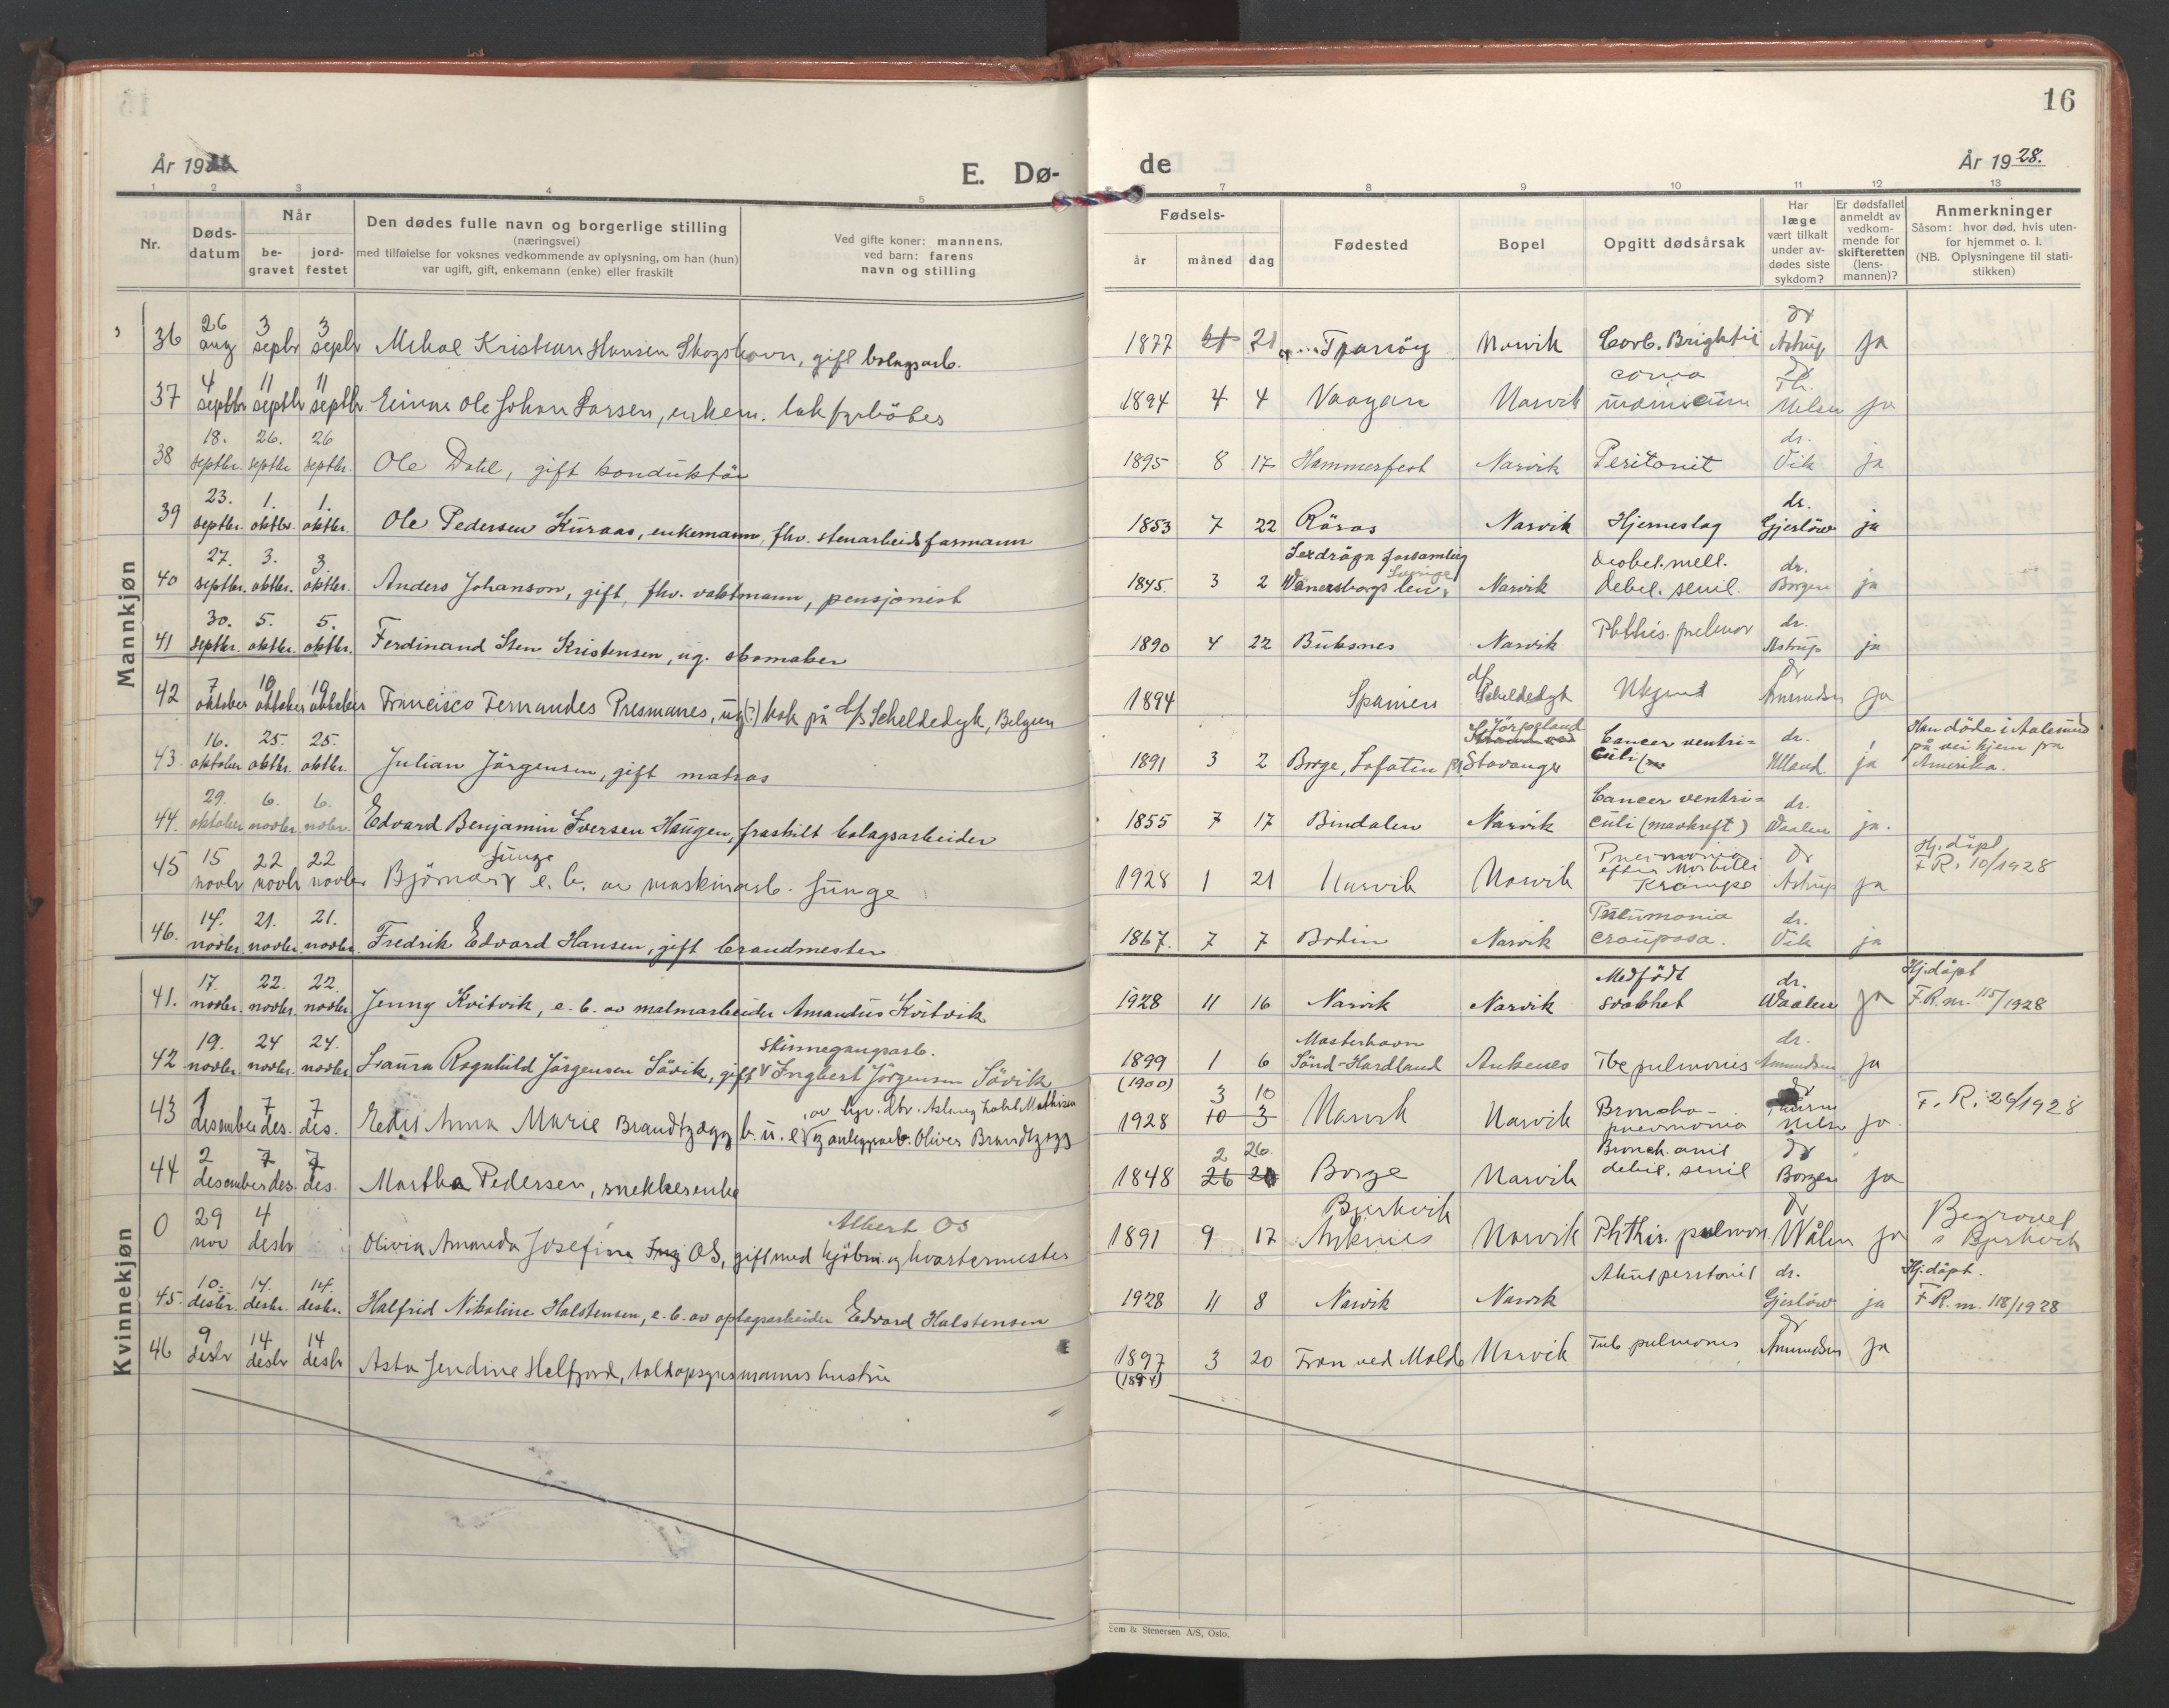 16
År 19
E. Dø-
de
År 1928.
1 2 3 4 5
7 8 9 10 11 12 13
Nr.
Døds-
datum
Når
be-
gravet
jord-
festet
Den dødes fulle navn og borgerlige stilling
(næringsvei)
med tilføielse for voksnes vedkommende av oplysning, om han (hun)
var ugift, gift, enkemann (enke) eller fraskilt
Ved gifte koner: mannens,
ved barn: farens
navn og stilling
Fødsels-
år måned dag
Fødested
Bopel
Opgitt dødsårsak
Har
læge
vært tilkalt
under av-
dødes siste
sykdom?
Er dødsfallet
anmeldt av
vedkom-
mende for
skifteretten
(lens-
mannen)?
Anmerkninger
Såsom: hvor død, hvis uten-
for hjemmet o. l.
(NB. Oplysningene til stati-
stikken)
Mannkjøn
36 26 aug 3 septr 3 septr Mikal Kristian Hansen Skogshavn, gift bolagsarb. 1877 21 Narvik Morb. Brightii dr Astrup ja
37 4 septbr 11 septbr 11 septbr. Einar Ole Johan Larsen, enkem. lokfyrböter 1894 4 4 Vaagan Narvik coma dr Th. Nilsen ja
38 18. septbr. 26. septbr 26 septbr. Ole Dahl, gift konduktör 1895 8 17 Hammerfest Narvik Peritonit dr. Vik ja
39 23. septbr. 1. oktbr. 1. oktbr. Ole Pedersen Kuraas, enkemann, fhv. stenarbeidsformann 1853 7 22 Röros Narvik Hjerneslag dr. Gjerlöw ja
40 27. septbr. 3. oktbr. 3. oktbr. Anders Johanson, gift, fhv. vaktmann, pensjonist 1845. 3 2 Wenersborgs len, Sverige Narvik Diabet. mell. debil. senil. dr. Borgen ja
41 30. septbr. 5. oktbr. 5. oktbr. Ferdinand Sten Kristensen, ug. skomaker 1890 4 22 Buksnes Narvik Phthis. pulmon dr. Astrup ja
42 7 oktober 19 oktober 19 oktober Francisco Fernandes Presmanes, ug(?) kok på d/s Scheldedyk, Belgien 1894 Spanien d/s Scheldedyk Ukjent dr Amundsen ja
43. 16. oktober 25. oktbr. 25. oktbr. Julian Jörgensen, gift matros 1891 3 2 Borge, Lofoten Jörpeland Stavanger Cancer ventri- culi dr. Ulland ja Han döde i Aalesund på vei hjem fra Amerika.
44. 29. oktober 6. novbr. 6. novbr. Edvard Benjamin Iversen Haugen, fraskilt bolagsarbeider 1855 7 17 Bindalen Narvik Cancer ventri= culi (mavkreft) dr. Waalen ja.
45 15 novbr 22 novbr 22 novbr Björnar Junge e. b. av maskinarb. Junge 1928 1 21 Narvik Narvik Pneumonia efter Morbilli Krampe dr Astrup ja Hj. döpt F.R. 10/1928
46. 14. novbr. 21. novbr. 21. novbr. Fredrik Edvard Hansen, gift brandmester 1867. 7 7 Bodin Narvik Pneumonia crouposa. dr. Vik ja
Kvinnekjøn
41. 17. novbr. 22. novbr. 22. novbr. Jenny Kvitvik, e. b. av malmarbeider Amandus Kvitvik 1928 11 16 Narvik Narvik Medfödt svakhet dr. Waalen ja Hj. döpt F.R. nr. 115/1928
42 19. novbr. 24 novbr. 24. novbr. Laura Ragnhild Jörgensen Sövik, gift v skinnegangsarb. Ingbert Jörgensen Sövik 1899 (1900) 1 6 Mosterhavn Sönd-Hordland Ankenes Tbc pulmonis dr. Amundsen ja
43 1 desember 7 des. 7 des. Anna Marie Brandtzægg b. u. e av Mathisen og anleggsarb. Oliver Brandtzegg 1928 10 3 3 10 Narvik Narvik Broncho- pneumonia dr Nilsen ja F. R. 26/1928
44 2 desember 7 des. 7 des. Martha Pedersen, snekkerenke 1848 2 26 26. Borge Narvik Bronch. debil. senil dr Borgen ja
0 29 nov 4 desbr Olivia Amanda Josefine OS, gift med kjöbm. og kvartermester Albert OS 1891 9 17 Bjerkvik Ankenes Narvik Phthis. pulmon. dr Wålen ja Begravet i Bjerkvik
45. 10. desbr. 14. desbr. 14. desbr. Halfrid Nikoline Halstensen, e. b. av oplagsarbeider Edvard Halstensen 1928 11 8 Narvik Narvik Akut peritonit dr. Gjerlöw ja Hj. döpt. F.R. nr. 118/1928
46 9 desbr 14 desbr 14 desbr Asta Jendine Helfjord, toldopsynsmanns hustru 1897 3 20 Fron ved Molde Narvik Tub pulmonis dr Amundsen ja
Sem & Stenersen A/S, Oslo.